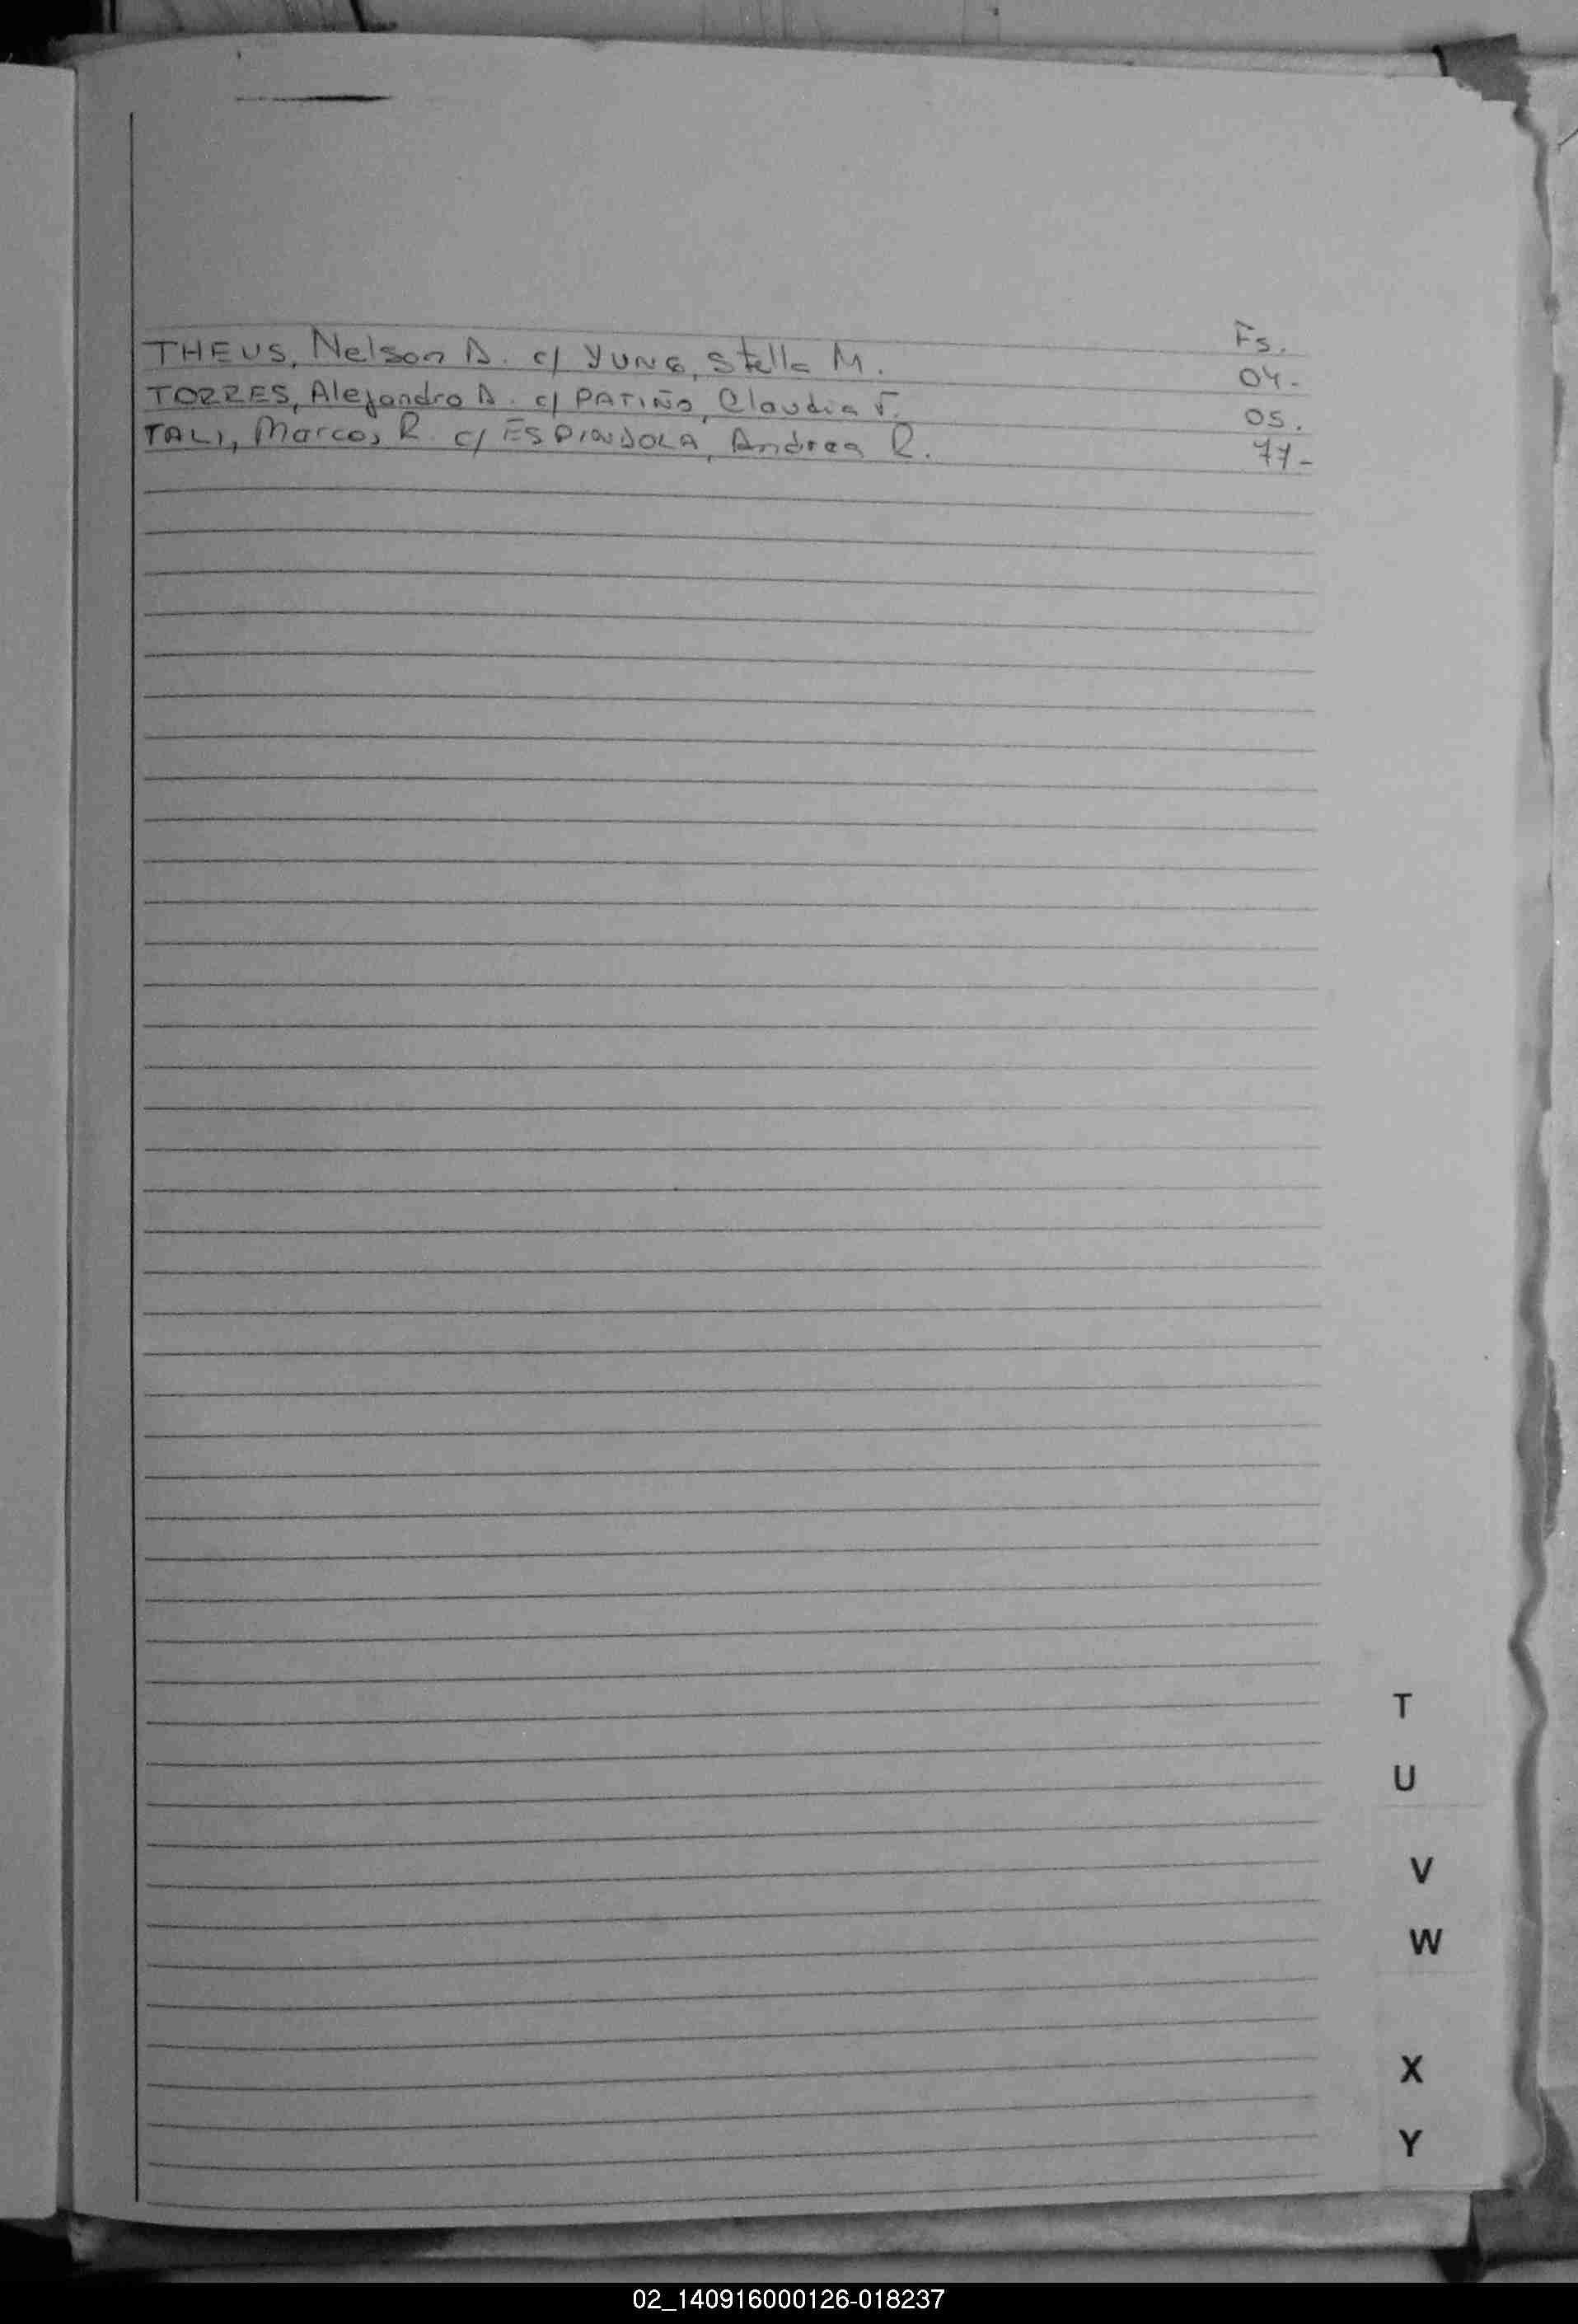 Fs.
THEUS, Nelson D. c/ YUNG, Stella M. 04-
TORRES, Alejandro D. c/ PATIÑO, Claudia F. 05.
TALI, Marcos R. c/ ESPINDOLA, Andrea R. 77-
T
U
V
W
X
Y
02_140916000126-018237